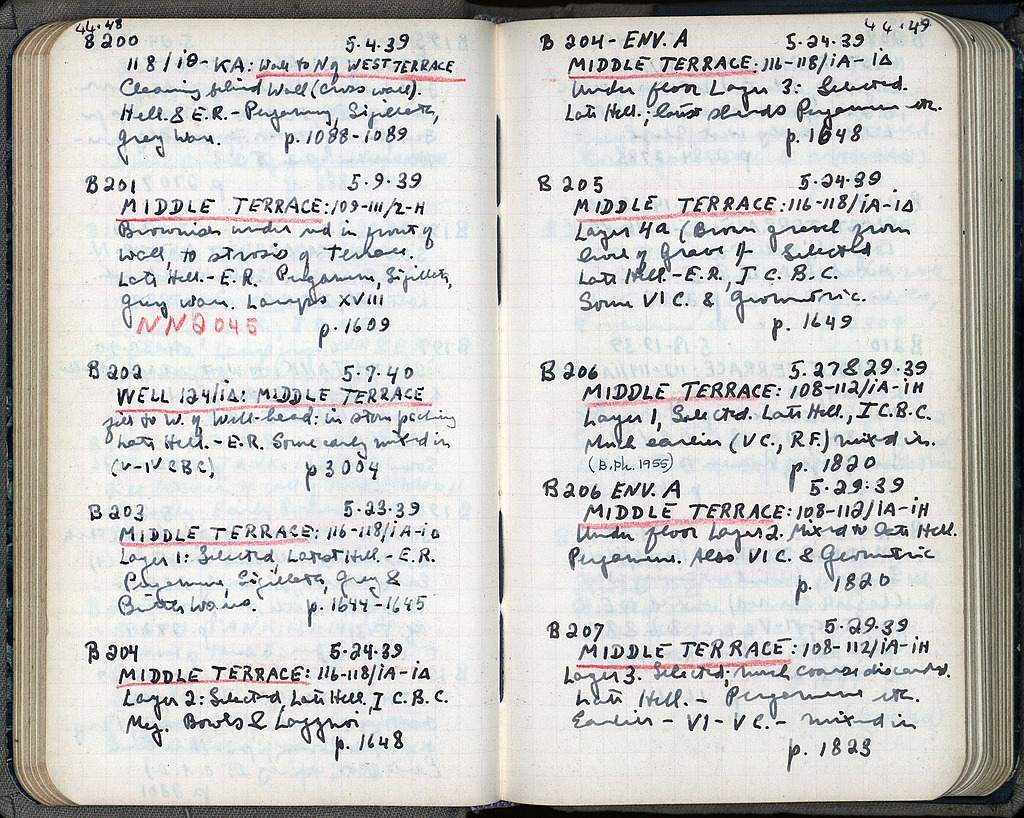 44.48
B 200 5.4.39
118/1θ-KA: Wall to N of WEST TERRACE
Cleaning behind Wall (cross wall).
Hell. & E.R. - Pergamene, Sigillata,
grey ware. p. 1088-1089
B 201 5.9.39
MIDDLE TERRACE: 109-111/Z-H
Brownish under red in front of
wall to strosis of Terrace.
Late Hell. - E.R. Pergamene, Sigillata,
grey ware. Lamps XVIII
NN2045 p. 1609
B 202 5.7.40
WELL 124/ιΔ: MIDDLE TERRACE
fill to W. of Well-head: in stone packing
Late Hell. - E.R. Some early mixed in
(V-IV C BC) p 3004
B 203 5.23.39
MIDDLE TERRACE: 116-118/ιA-ιΔ
Layer 1: Selected, Latest Hell - E.R.
Pergamene, Sigillata, Grey &
Wares. p. 1644-1645
B 204 5.24.39
MIDDLE TERRACE: 116-118/ιA-ιΔ
Layer 2: Selected, Late Hell, I C. B.C.
Meg. Bowls & Lagynoi
p. 1648
44.49
B 204 - ENV. A 5.24.39
MIDDLE TERRACE: 116-118/ιA-ιΔ
Under floor Layer 3: Selected.
Late Hell.; latest sherds Pergamene etc.
p. 1648
B 205 5.24.39
MIDDLE TERRACE: 116-118/ιA-ιΔ
Layer 4a (Brown gravel from
line of Grave Selected
Late Hell. - E.R., I C. B.C.
Some VI C. & Geometric.
p. 1649
B 206 5.27 & 29.39
MIDDLE TERRACE: 108-112/ιA-ιH
Layer 1, Selected. Late Hell., I C. B.C.
Much earlier (V C., R.F.) mixed in.
(B.Ph. 1955) p. 1820
B 206 ENV. A 5.29.39
MIDDLE TERRACE: 108-112/ιA-ιH
Under floor Layer 2. Mixed to late Hell.
Pergamene. Also VI C. & Geometric
p. 1820
B 207 5.29.39
MIDDLE TERRACE: 108-112/ιA-ιH
Layer 3. Selected; much coarse discarded.
Late Hell. - Pergamene etc.
Earlier - VI-V C. - mixed in
p. 1823